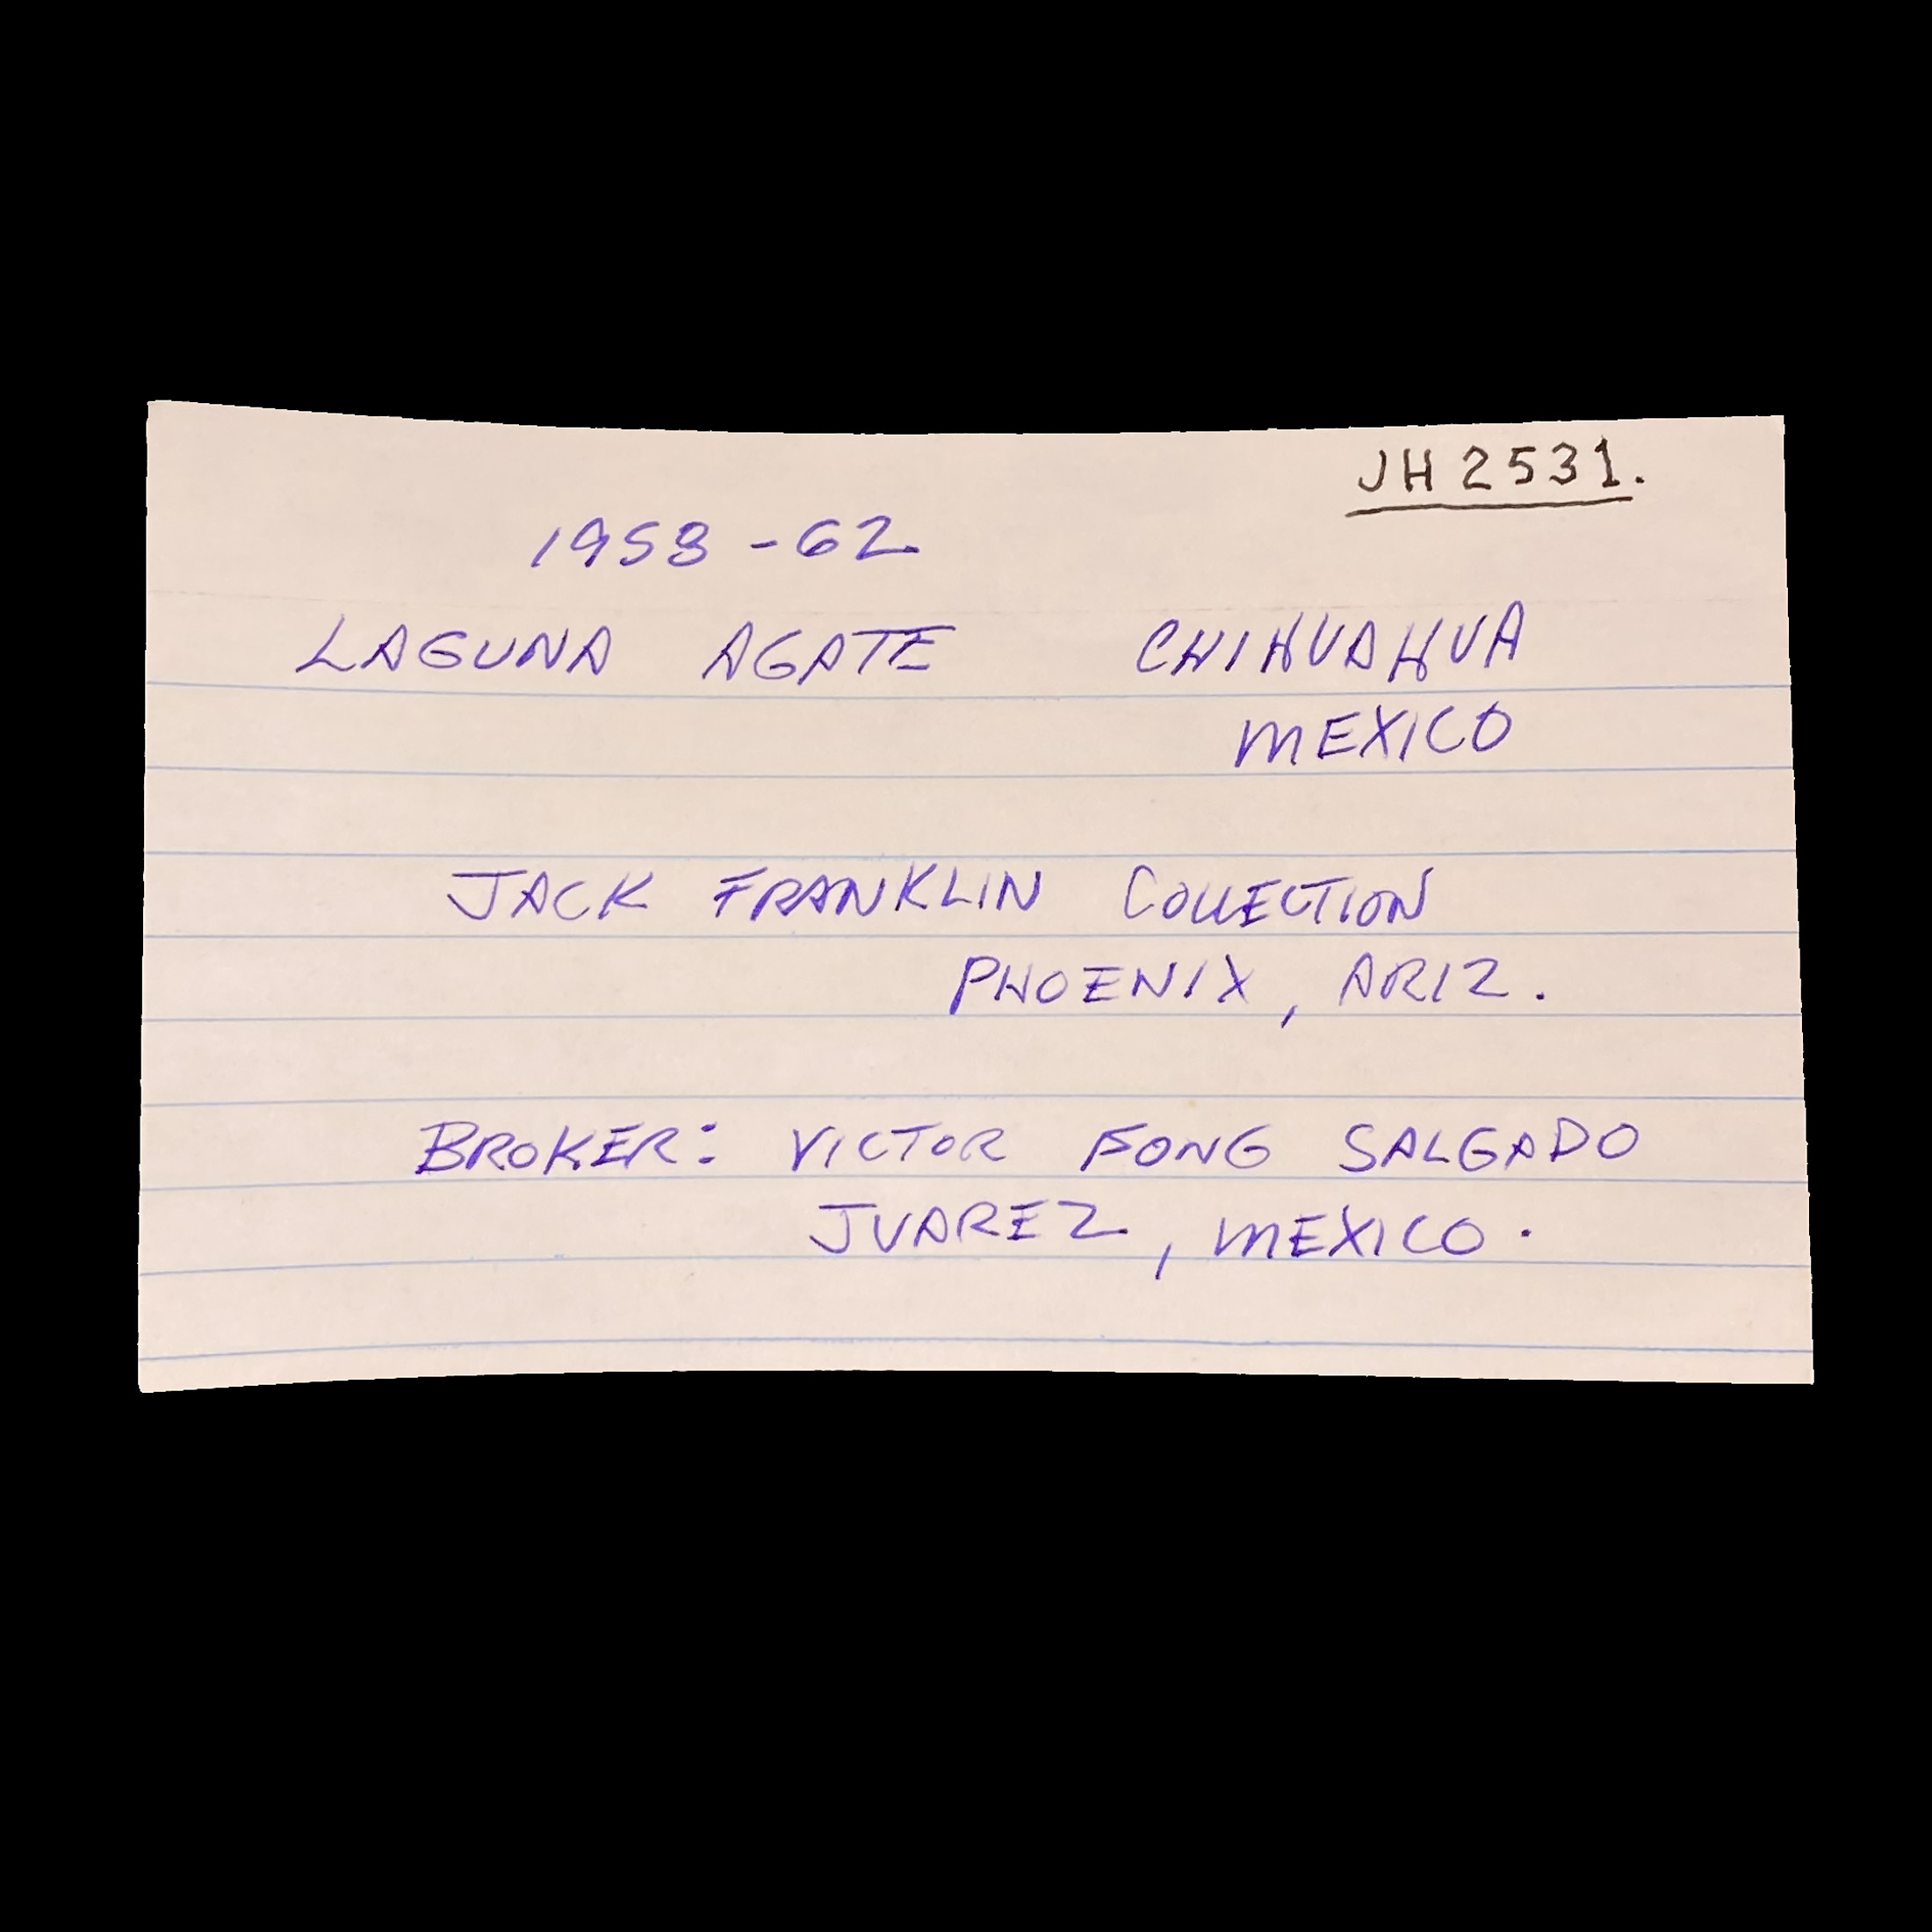 JH 2531.
1958 - 62
LAGUNA AGATE CHIHUAHUA
MEXICO
JACK FRANKLIN COLLECTION
PHOENIX, ARIZ.
BROKER: VICTOR FONG SALGADO
JUAREZ, MEXICO.